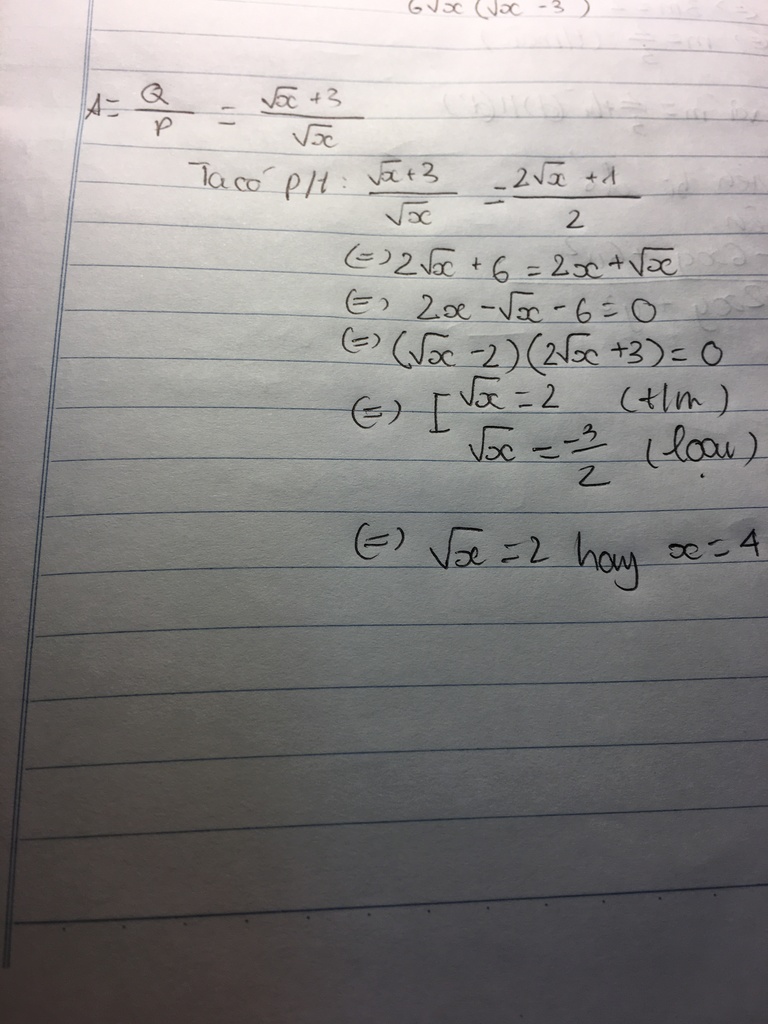 6√x (√x - 3)
A = Q/P = (√x + 3)/√x
Ta có p/t: (√x + 3)/√x = (2√x + 1)/2
(=) 2√x + 6 = 2x + √x
(=) 2x - √x - 6 = 0
(=) (√x - 2)(2√x + 3) = 0
(=) [ √x = 2 (t/m)
√x = -3/2 (loại)
(=) √x = 2 hay x = 4